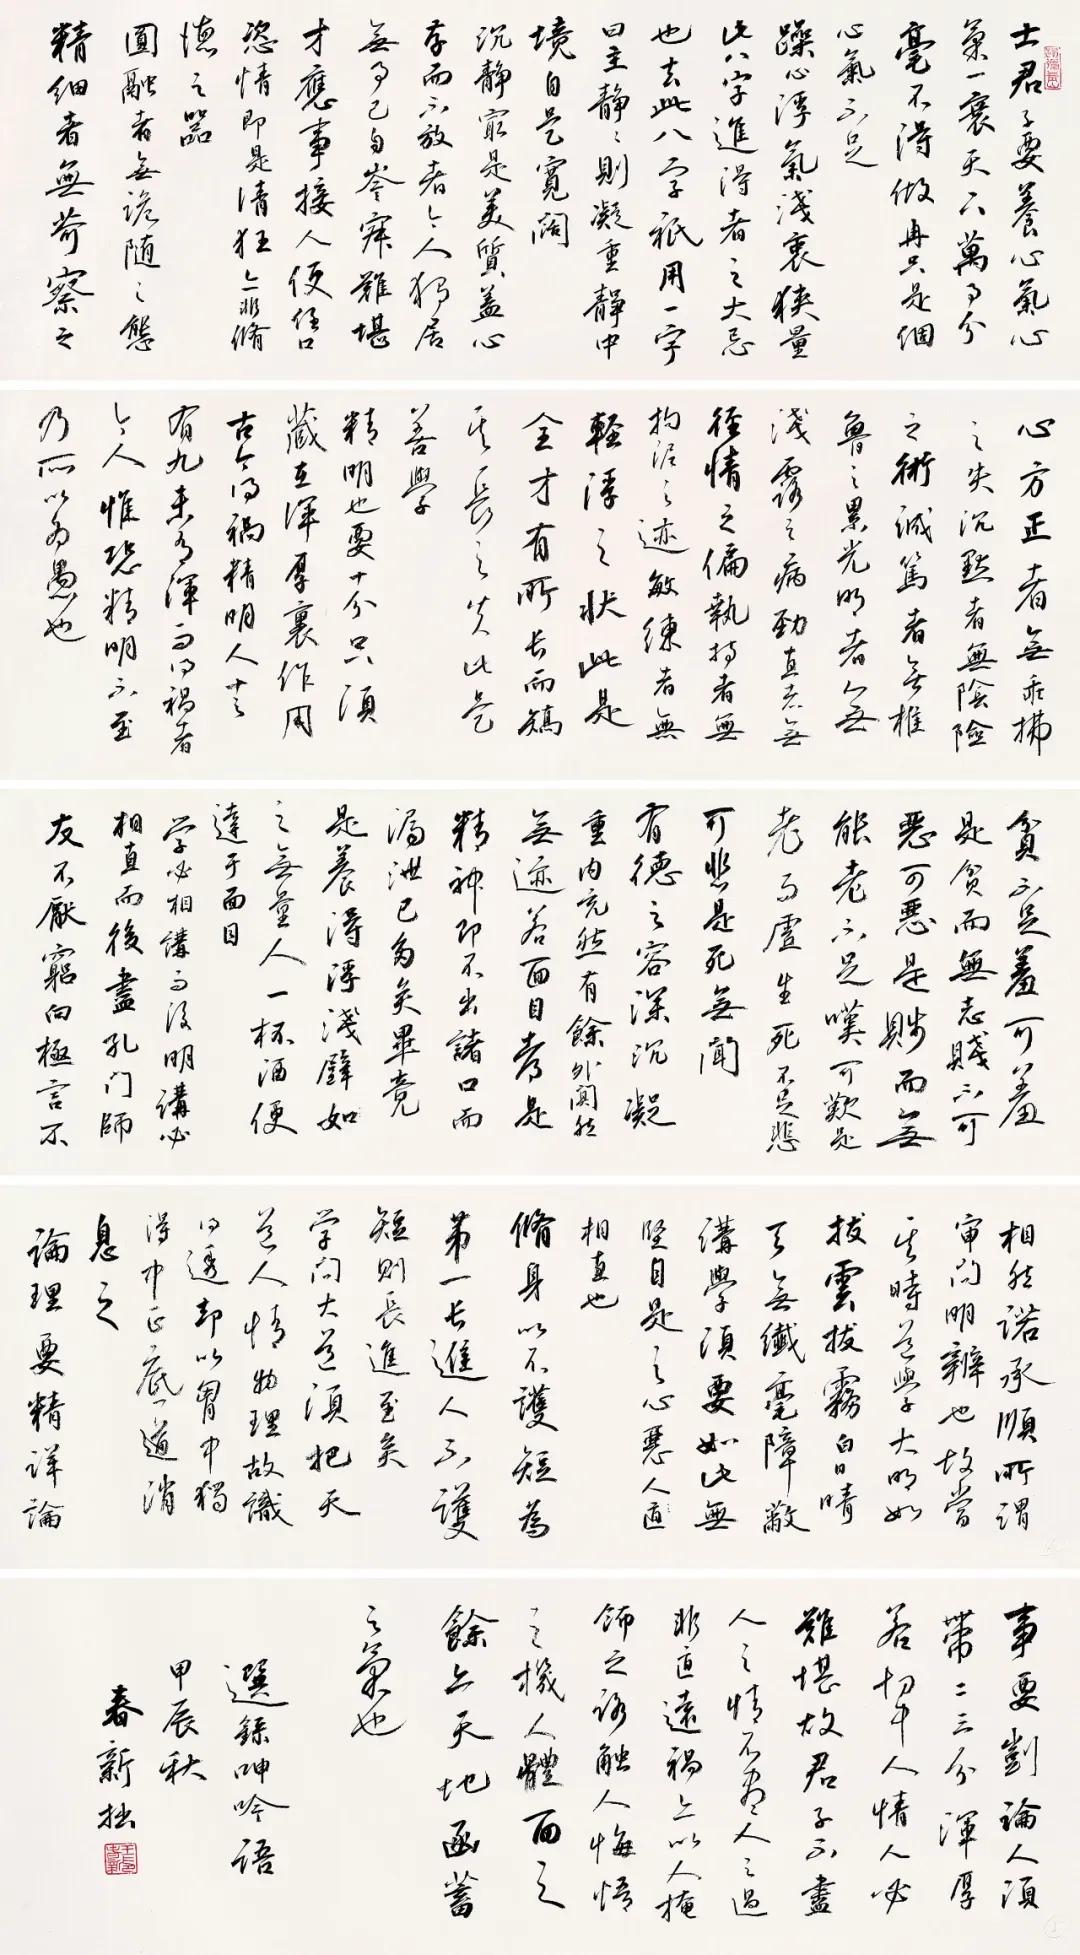 士君子要養心氣心
氣一衰天下萬事分
毫不得做冉只是個
心氣不足
躁心浮氣淺衷狹量
此八字進得者之大忌
也去此八字祇用一字
曰主靜靜則凝重靜中
境自是寬闊
沉靜最是美質蓋心
存而不放者今人獨居
無事已自岑寂難堪
才應事接人便任口
恣情即是清狂亦非脩
德之器
圓融者無詭隨之態
精細者無苛察之
心方正者無乖拂
之失沉默者無陰險
之術誠篤者無椎
魯之累光明者無
淺露之病勁直者無
徑情之偏執持者無
拘泥之迹敏練者無
輕浮之狀此是
全才有所長而矯
其長之失此是
善學
精明也要十分只須
藏在渾厚裏作用
古今得禍精明人十之
有九未有渾而得禍者
今人惟恐精明不至
乃所以為愚也
貧不足羞可羞
是貧而無志賤不可
惡可惡是賤而無
能老不足嘆可歎是
老而虛生死不足悲
可悲是死無聞
有德之容深沉凝
重內充然有餘外闃然
無迹若面目都是
精神即不出諸口而
漏泄已多矣畢竟
是養得浮淺譬如
之無量人一杯酒便
達于面目
学必相講而後明講必
相直而後盡孔门師
友不厭窮问極言不
相然諾承順所謂
审问明辨也故當
其時道學大明如
拔雲拔霧白日晴
天無纖毫障蔽
講學須要如此無
堅自是之心惡人直
相直也
脩身以不護短為
第一长進人不護
短則長進至矣
学问大道須把天
道人情物理故識
得透却以胷中獨
得中正底道消
息之
論理要精详論
事要剴論人須
帶二三分渾厚
若切中人情人必
難堪故君子不盡
人之情不盡人之過
非直遠禍亦以人掩
飾之路触人悔悟
之機人體面之
餘亦天地涵蓄
之氣也
選錄呻吟语
甲辰秋
春新拙